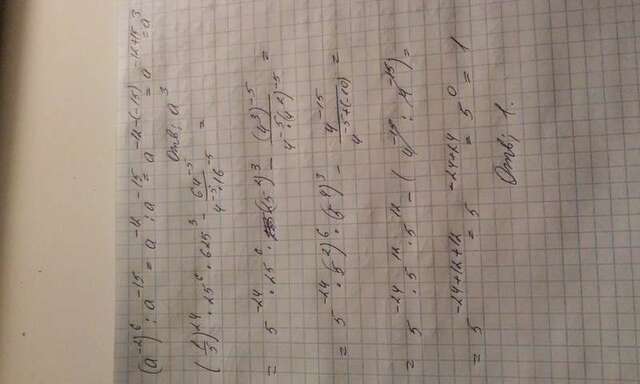 (a^-2)^6 : a^-15 = a^-12 : a^-15 = a^-12-(-15) = a^-12+15 = a^3
Отв: a^3
(1/5)^24 · 25^6 · 625^3 - 64^-5 / 4^-5 · 16^-5 =
= 5^-24 · 25^6 · (5^4)^3 - (4^3)^-5 / 4^-5 · (4^2)^-5 =
= 5^-24 · (5^2)^6 · (5^4)^3 - 4^-15 / 4^-5+(-10) =
= 5^-24 · 5^12 · 5^12 - (4^-15 : 4^-15) =
= 5^-24+12+12 = 5^-24+24 = 5^0 = 1
Отв: 1.